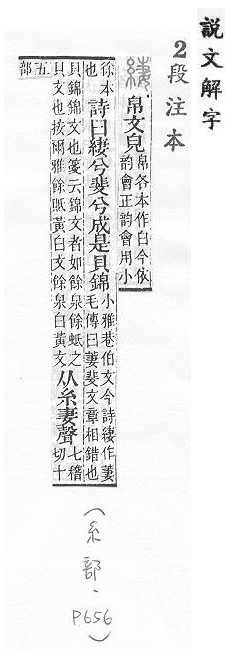 說文解字
2段注本
緀帛文皃帛各本作白今依
韵會正韵會用小
徐本
也
詩曰緀兮斐兮成是貝錦小雅巷伯文今詩緀作萋
毛傳曰萋斐文章相錯也
貝錦錦文也箋云錦文者如餘泉餘蚳之
貝文也按爾雅餘貾黃白文餘泉白黃文
从糸妻聲七稽
切十
五
部
(糸部、P656)